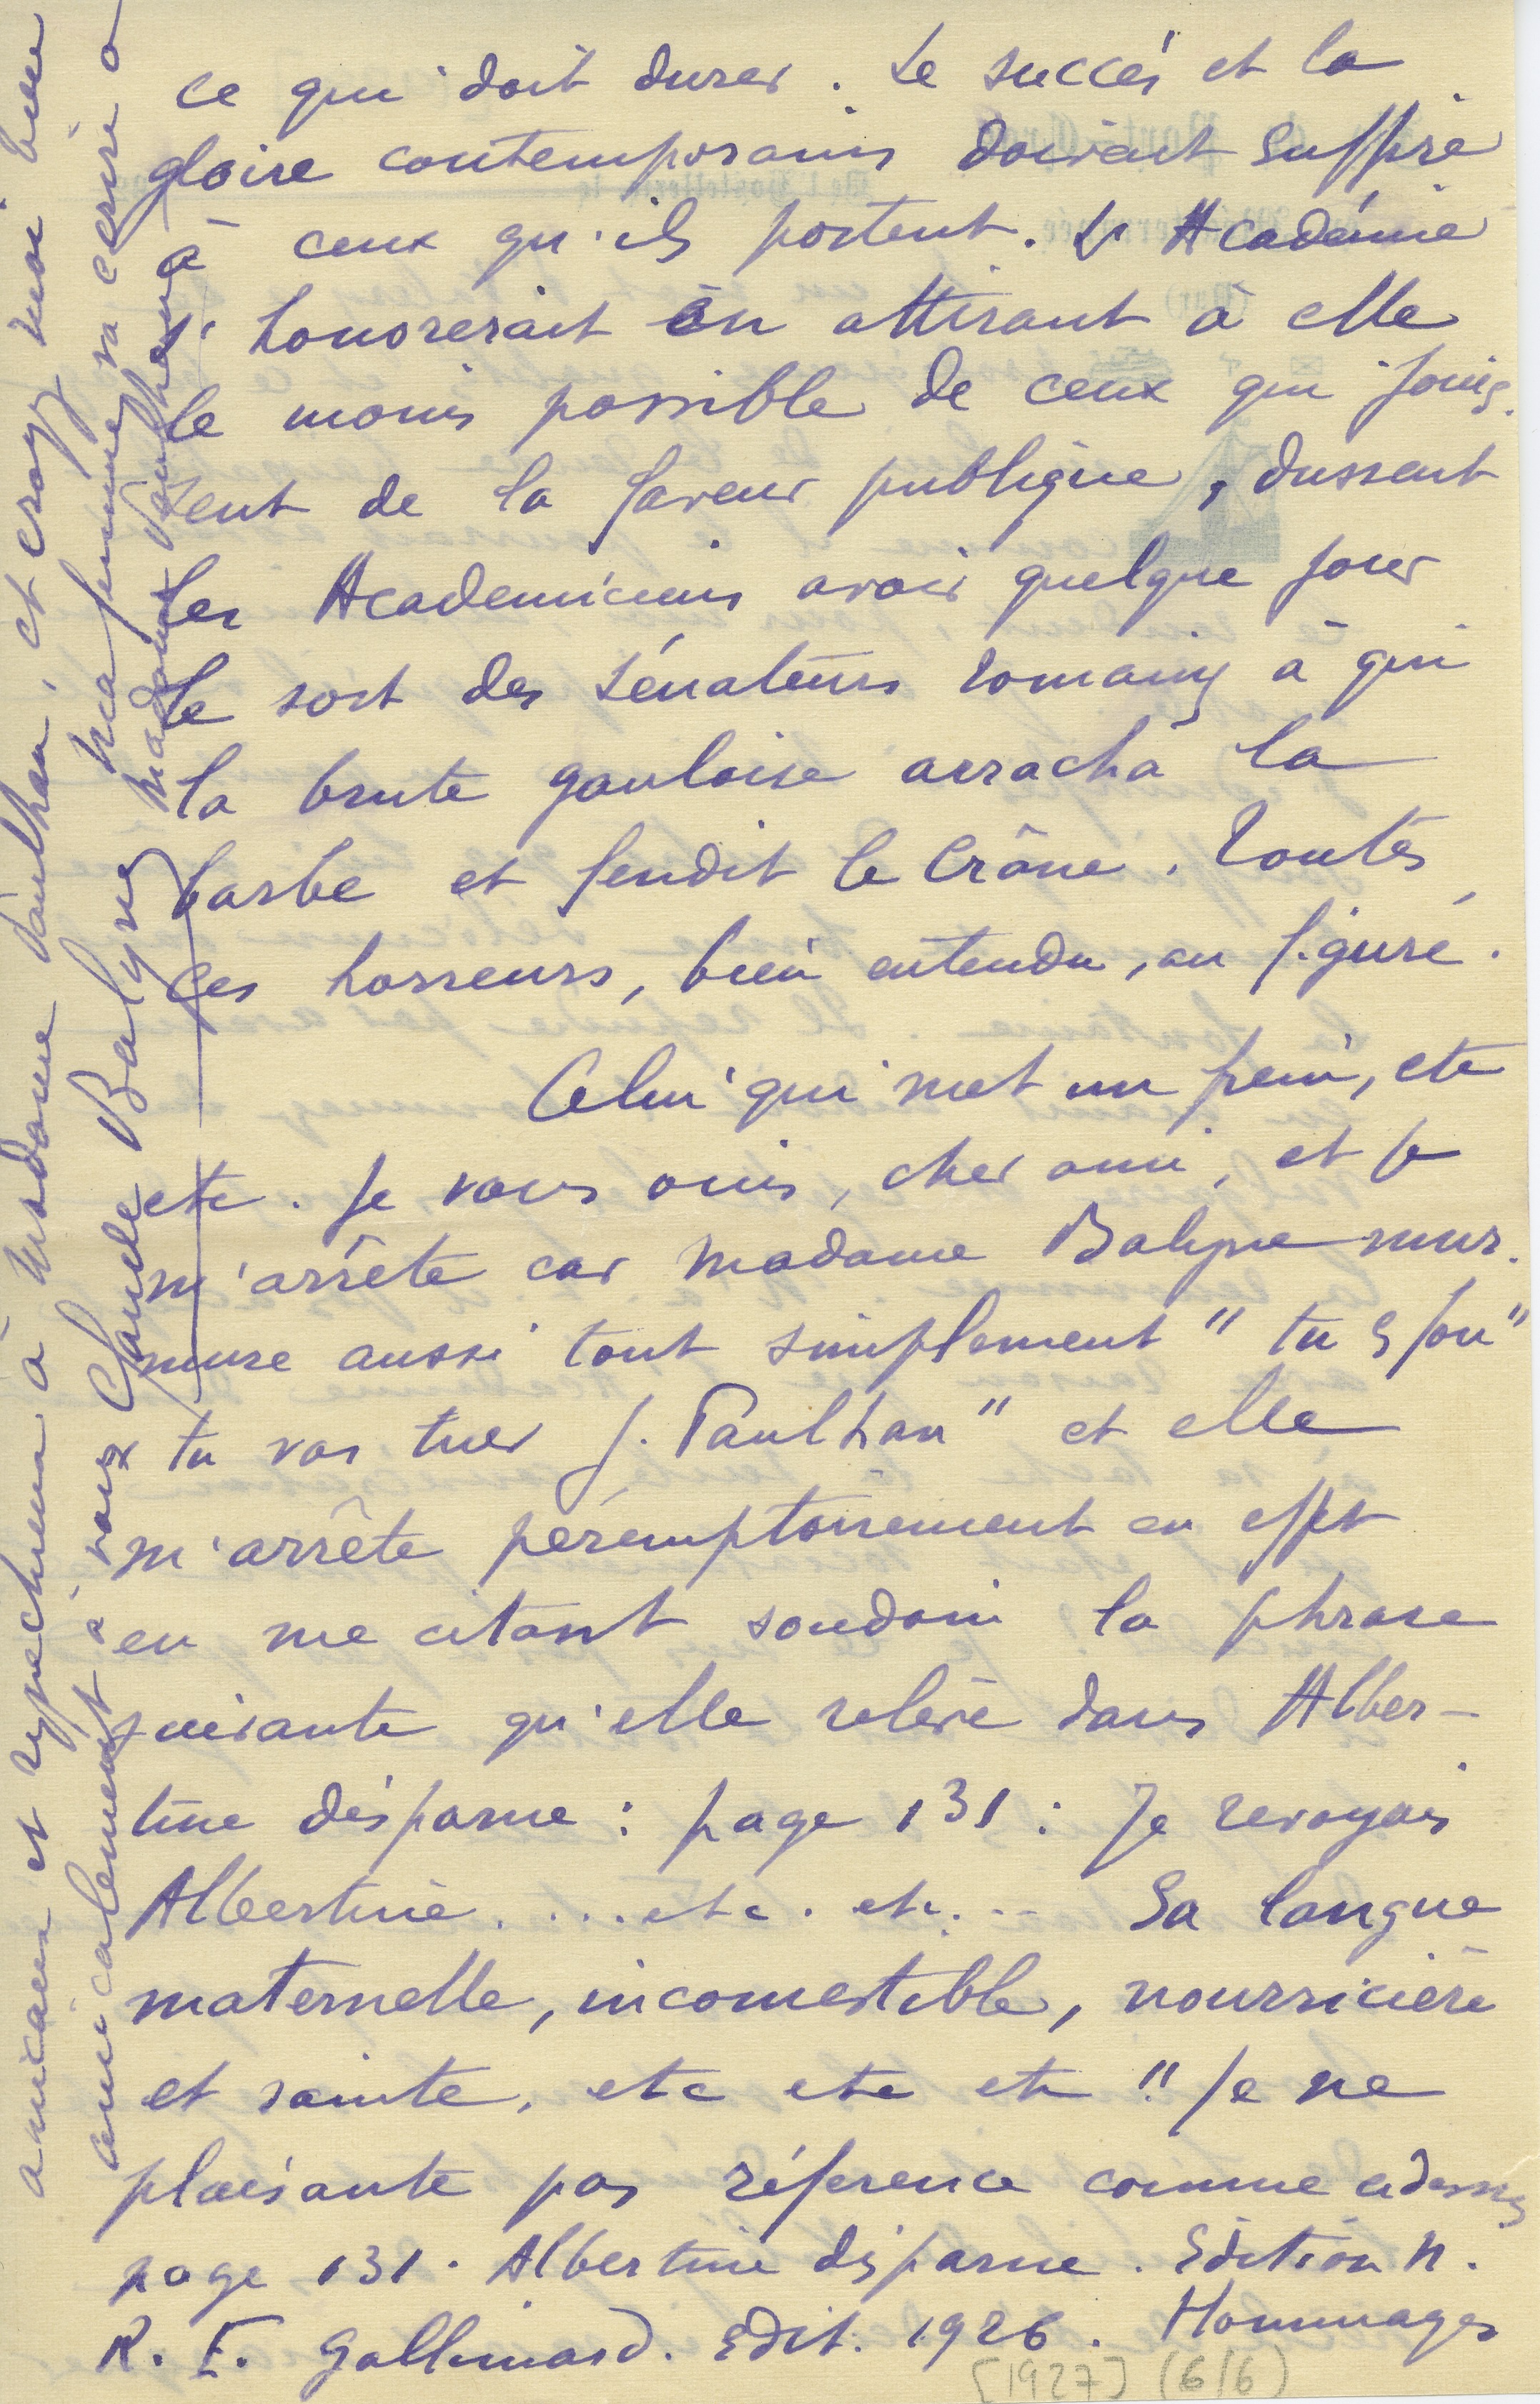 ce qui doit durer. Le succès et la
gloire contemporains doivent suffire
à ceux qu'ils portent. L'Académie
s'honorerait en attirant à elle
le moins possible de ceux qui jouis-
sent de la faveur publique, dussent
les Academiciens avoir quelque jour
le sort des Sénateurs romains à qui
la brute gauloise arracha la
barbe et fendit le crâne. Toutes
ces horreurs, bien entendu, au figuré.
Celui qui met un frein, etc
etc. Je vous ouis, cher ami, et je
m'arrête car Madame Balyne mur-
mure aussi tout simplement " tu es fou"
tu vas tuer J. Paulhan" et elle
m'arrête péremptoirement en effet
en me citant soudain la phrase
suivante qu'elle relève dans Alber-
tine disparue : page 131 : Je revoyais
Albertine.....etc. etc... Sa langue
maternelle, incomestible, nourricière
et sainte, etc etc etc " Je ne
plaisante pas référence comme cidessus
page 131. Albertine disparue. Edition N.
R. F. Gallimard. Edit. 1926. Hommages
amicaux et respectueux à Madame Paulhan, et croyez moi bien
amicalement à vous Claude Balyne
ma femme va écrire à
madame Paulhan
[1927] (6/6)